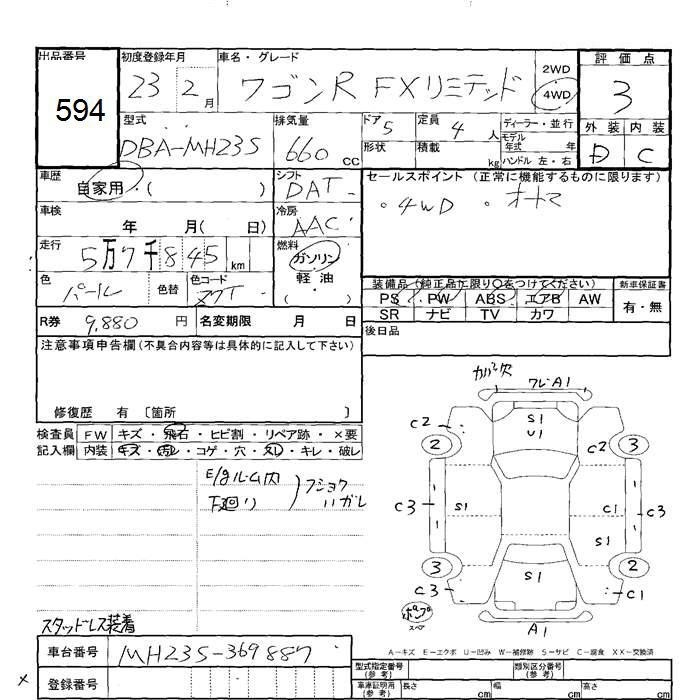 出品番号 初度登録年月 車名・グレード 評価点
594 23 2月 ワゴンR FXリミテッド 2WD 4WD 3
外装 内装
D C
型式 排気量 ドア 5 定員 4人 ディーラー・並行
DBA-MH23S 660cc 形状 積載 kg モデル年式 年
ハンドル 左・右
車歴 自家用・( ) シフト DAT セールスポイント (正常に機能するものに限ります)
・4WD ・オートマ
車検 年 月( 日) 冷房 AAC
走行 5万7千845km 燃料 ガソリン
軽油
( )
色 パール 色替 色コード Z7T
装備品 (純正品に限り○をつけてください) 新車保証書
PS PW ABS エアB AW 有・無
SR ナビ TV カワ
R券 9,880円 名変期限 月 日 後日品
注意事項申告欄(不具合内容等は具体的に記入して下さい)
修復歴 有 〔箇所 〕
検査員 FW キズ・飛石・ヒビ割・リペア跡・×要
記入欄 内装 キズ・汚レ・コゲ・穴・スレ・キレ・破レ
E/gルーム内
下廻り
フショク
ハガレ
カバー欠
フレA1
C2 S1
U1 C2
2 3
C3 S1 C1 C3
S1
3 2
C3 S1 C1
ポンプ
スペア
A1
スタッドレス装着
A―キズ E―エクボ U―凹み W―補修跡 S―サビ C―腐食 XX―交換済
車台番号 MH23S-369887
登録番号
型式指定番号(参考) 類別区分番号(参考)
車庫証明用(参考) 長さ cm 幅 cm 高さ cm
×